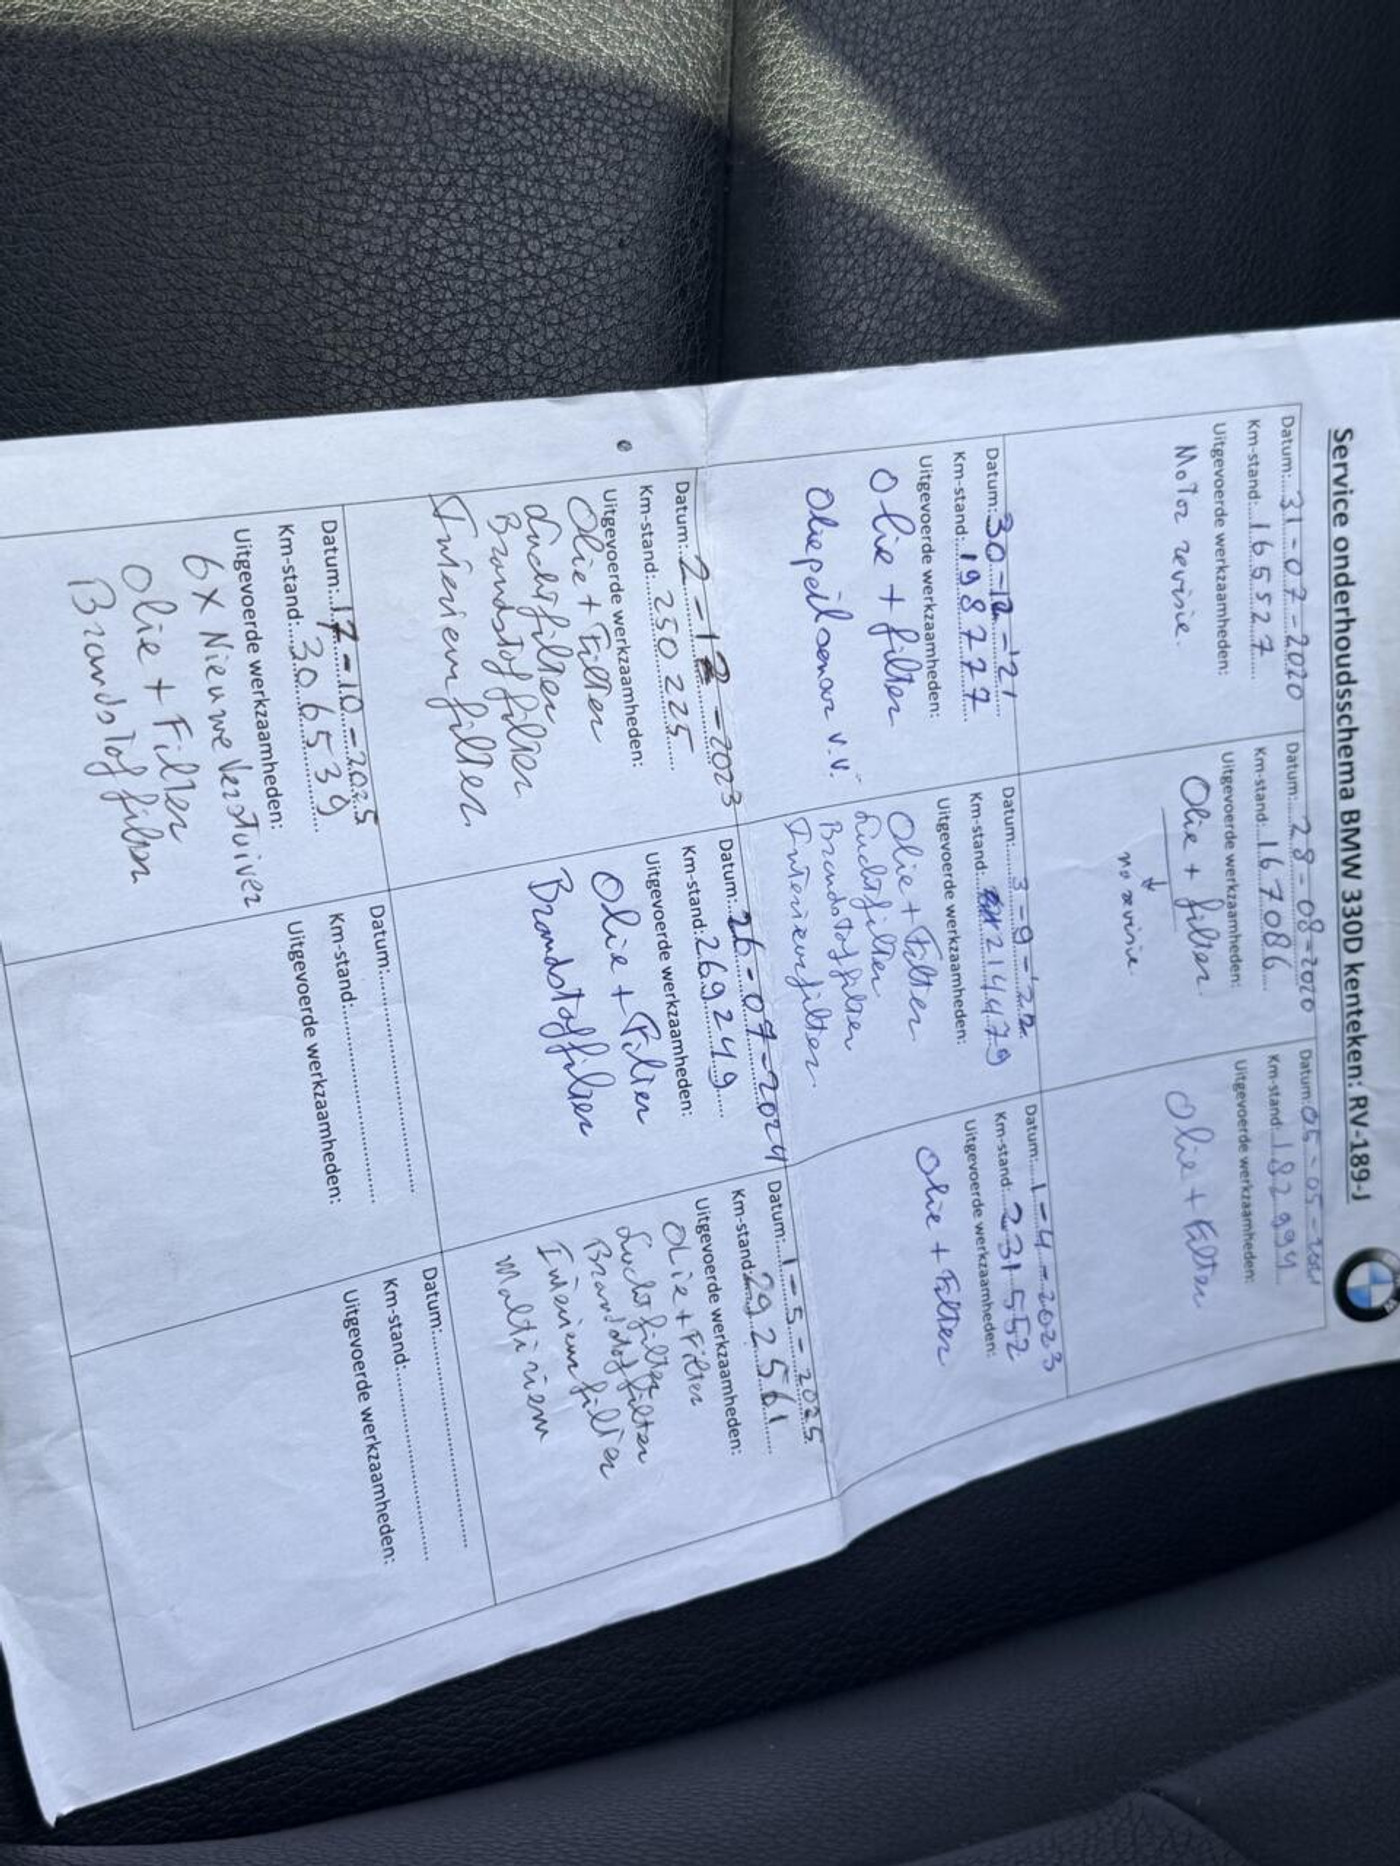 Service onderhoudsschema BMW 330D kenteken: RV-189-J
Datum: 31-07-2020
Km-stand: 165527
Uitgevoerde werkzaamheden:
Motor revisie.
Datum: 28-08-2020
Km-stand: 167086
Uitgevoerde werkzaamheden:
Olie + filter.
↓
na revisie.
Datum: 05-05-2021
Km-stand: 182994
Uitgevoerde werkzaamheden:
Olie + Filter
Datum: 30-12-'21
Km-stand: 198777
Uitgevoerde werkzaamheden:
Olie + filter
Oliepeilsensor v.v.
Datum: 3-9-'22
Km-stand: 214479
Uitgevoerde werkzaamheden:
Olie + Filter
Luchtfilter
Brandstoffilter
Interieurfilter.
Datum: 1-4-2023
Km-stand: 231552
Uitgevoerde werkzaamheden:
Olie + Filter
Datum: 2-12-2023
Km-stand: 250225
Uitgevoerde werkzaamheden:
Olie + Filter
Luchtfilter
Brandstoffilter
Interieurfilter.
Datum: 26-07-2024
Km-stand: 269249
Uitgevoerde werkzaamheden:
Olie + Filter
Brandstoffilter
Datum: 1-5-2025
Km-stand: 292561
Uitgevoerde werkzaamheden:
Olie + Filter
Luchtfilter
Brandstoffilter
Interieurfilter
Multiriem
Datum: 17-10-2025
Km-stand: 306539
Uitgevoerde werkzaamheden:
6x Nieuwe Verstuiver
Olie + Filter
Brandstoffilter
Datum:
Km-stand:
Uitgevoerde werkzaamheden:
Datum:
Km-stand:
Uitgevoerde werkzaamheden: